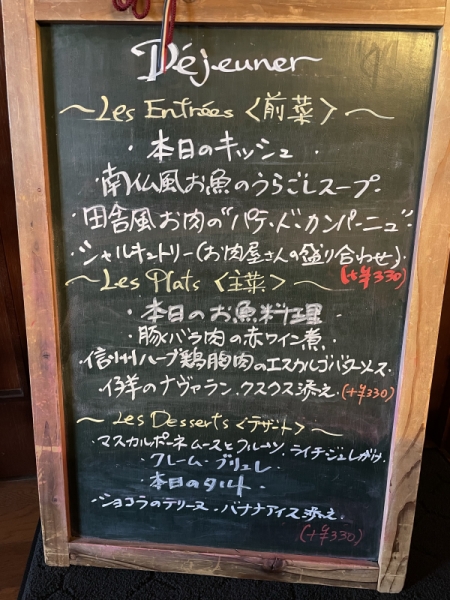 Déjeuner
～Les Entrées <前菜>～
・本日のキッシュ・
・南仏風お魚のうらごしスープ・
・田舎風お肉の"パテ・ド・カンパーニュ"
・シャルキュトリー(お肉屋さんの盛り合わせ)・
(+¥330)
～Les Plats <主菜>～
・本日のお魚料理・
・豚バラ肉の赤ワイン煮・
・信州ハーブ鶏胸肉のエスカルゴバターソース
・仔羊のナヴァラン、クスクス添え (+¥330)
～Les Desserts <デザート>～
・マスカルポーネムースとフルーツ、ライチジュレがけ・
・クレーム・ブリュレ・
・本日のタルト・
・ショコラのテリーヌ、バナナアイス添え・
(+¥330)